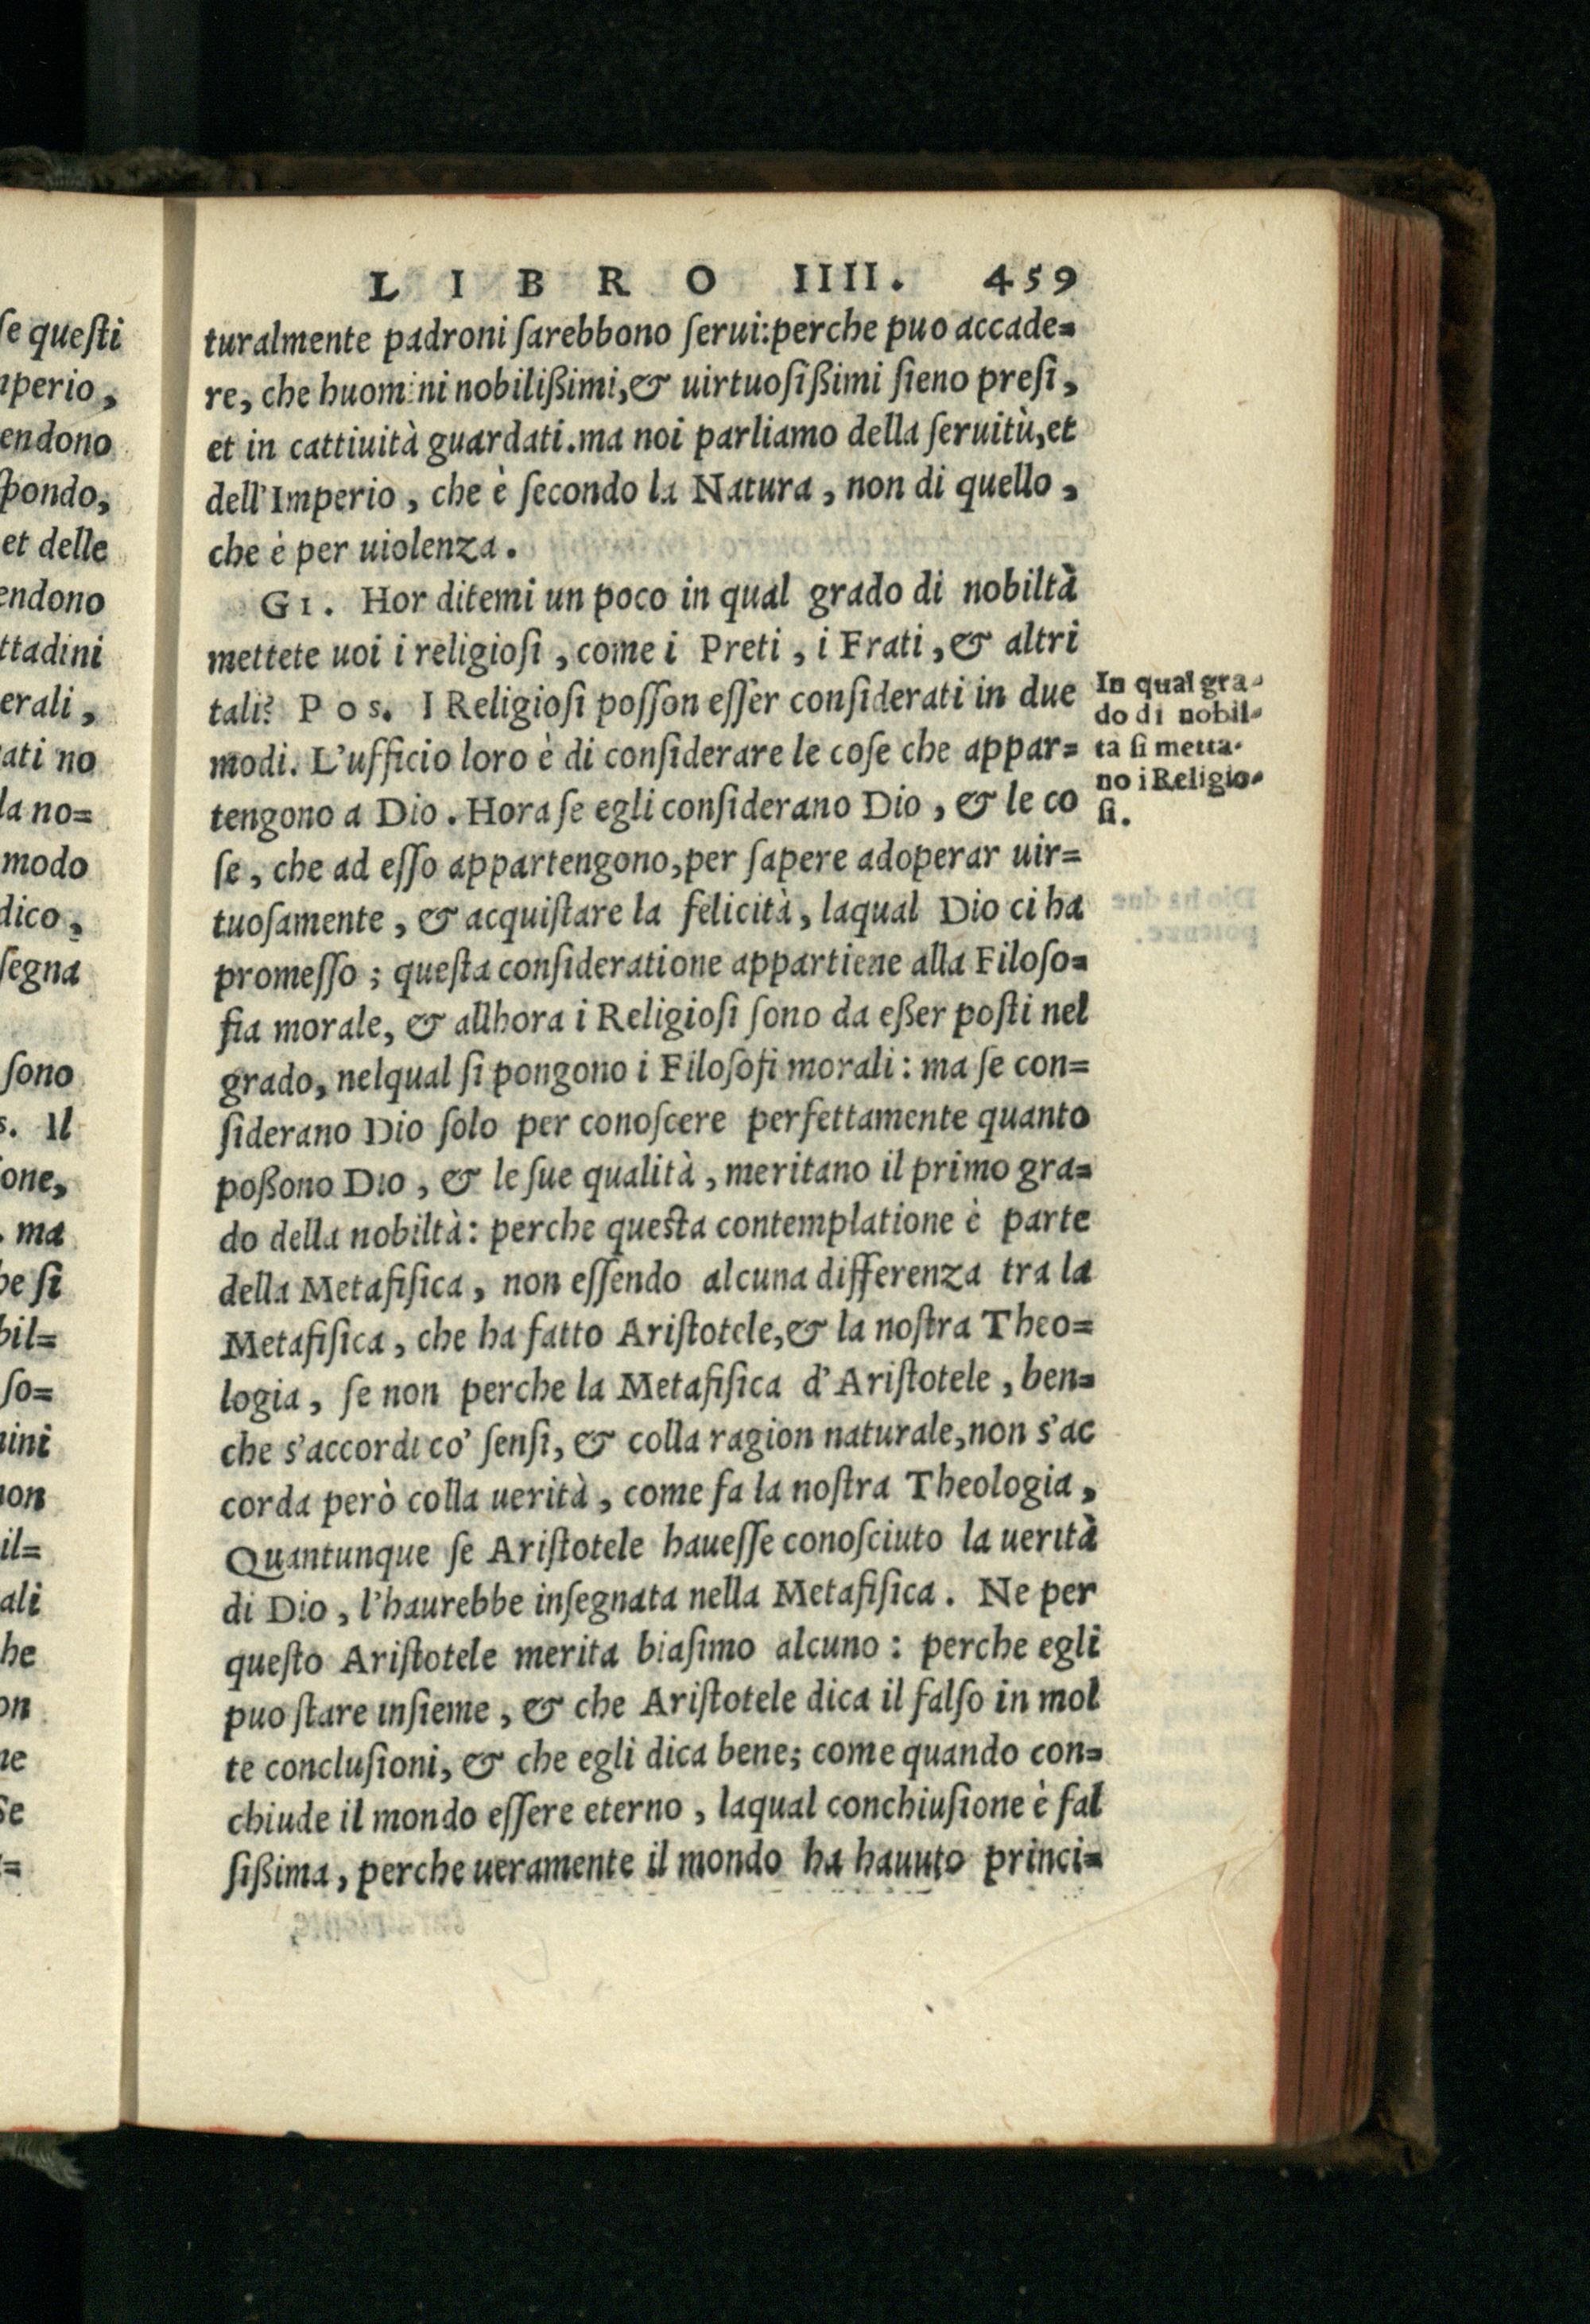 LIBRO IIII. 459
turalmente padroni ſarebbono ſerui:perche puo accade=
re, che huomini nobilißimi,& uirtuoſißimi ſieno preſi,
et in cattiuità guardati.ma noi parliamo della ſeruitù,et
dell'Imperio, che è ſecondo la Natura, non di quello,
che è per uiolenza.
GI. Hor ditemi un poco in qual grado di nobiltà
mettete uoi i religioſi, come i Preti, i Frati, & altri
tali? POS. I Religioſi poſſon eſſer conſiderati in due
modi. L'ufficio loro è di conſiderare le coſe che appar=
tengono a Dio. Hora ſe egli conſiderano Dio, & le co
ſe, che ad eſſo appartengono,per ſapere adoperar uir=
tuoſamente, & acquiſtare la felicità, laqual Dio ci ha
promeſſo; queſta conſideratione appartiene alla Filoſo=
fia morale, & allhora i Religioſi ſono da eßer poſti nel
grado, nelqual ſi pongono i Filoſofi morali: ma ſe con=
ſiderano Dio ſolo per conoſcere perfettamente quanto
poßono Dio, & le ſue qualità, meritano il primo gra=
do della nobiltà: perche queſta contemplatione è parte
della Metafiſica, non eſſendo alcuna differenza tra la
Metafiſica, che ha fatto Ariſtotele,& la noſtra Theo=
logia, ſe non perche la Metafiſica d'Ariſtotele, ben=
che s'accordi co' ſenſi, & colla ragion naturale,non s'ac
corda però colla uerità, come fa la noſtra Theologia,
Quantunque ſe Ariſtotele haueſſe conoſciuto la uerità
di Dio, l'haurebbe inſegnata nella Metafiſica. Ne per
queſto Ariſtotele merita biaſimo alcuno: perche egli
puo ſtare inſieme, & che Ariſtotele dica il falſo in mol
te concluſioni, & che egli dica bene; come quando con=
chiude il mondo eſſere eterno, laqual conchiuſione è fal
ſißima, perche ueramente il mondo ha hauuto princi=
In qual gra-
do di nobil-
tà ſi metta-
no i Religio-
ſi.
ſe queſti
endono
et delle
ttadini
erali,
la no=
modo
ſegna
ſono
Il
ma
ſi